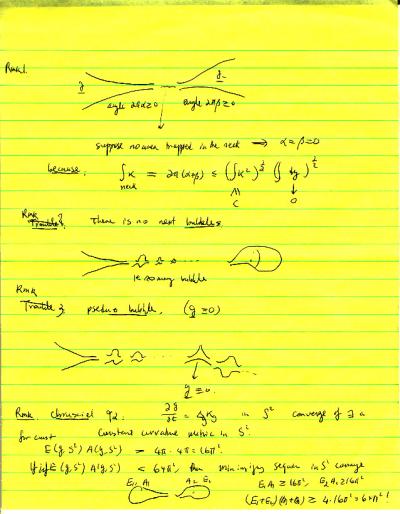 Rmk1.
g
g
angle 2πα≥0 angle 2πβ≥0
suppose no area trapped in the neck ⟹ α=β=0
because: ∫_neck K = 2π(α+β) ≤ (∫K²)^½ (∫ dg)^½
C 0
Rmk 2. There is no next bubbles
Rmk
3. pseudo bubble. (g ≡0)
g ≡ 0.
Rmk Chrusciel '92. ∂g/∂t = Δ_g K_g in S² converge of g a
constant curvature metric in S².
E(g,S²) A(g,S²) = 4π·4π = 16π².
If E(g,S²) A(g,S²) < 64π², then minimizing sequence in S² converge
E₁, A₁ A₂ E₂ E₁A₁ ≥ 16π², E₂A₂ ≥ 16π²
(E₁+E₂)(A₁+A₂) ≥ 4·16π² = 64π²!